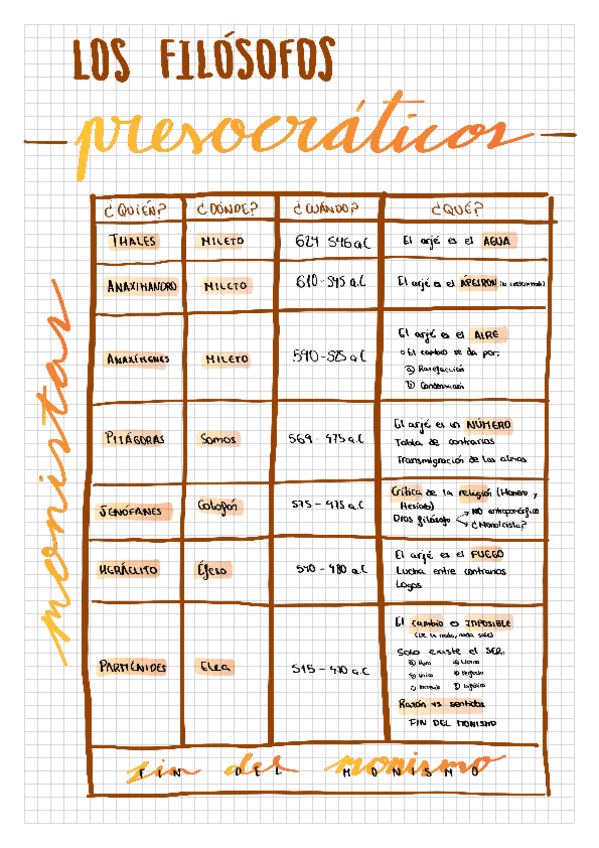 LOS FILÓSOFOS
presocráticos
monistas
¿QUIÉN? ¿DÓNDE? ¿CUÁNDO? ¿QUÉ?
THALES MILETO 624 546 a.C El arjé es el AGUA
ANAXIMANDRO MILETO 610-545 a.C El arjé es el ÁPEIRON
ANAXÍMENES MILETO 590-525 a.C El arjé es el AIRE
El cambio se da por:
Rarefacción
Condensación
PITÁGORAS Samos 569-475 a.C El arjé es un NÚMERO
Tabla de contrarios
Transmigración de las almas
JENÓFANES Colofón 575-475 a.C Crítica de la religión (Homero y
Hesíodo)
Dios filósofo → NO antropomórfico
→ ¿Monoteísta?
HERÁCLITO Éfeso 540-480 a.C El arjé es el FUEGO
Lucha entre contrarios
Logos
PARMÉNIDES Elea 515-470 a.C El cambio es IMPOSIBLE
(de la nada, nada sale)
Solo existe el SER:
Razón vs sentidos
FIN DEL MONISMO
fin del monismo
FIN DEL MONISMO